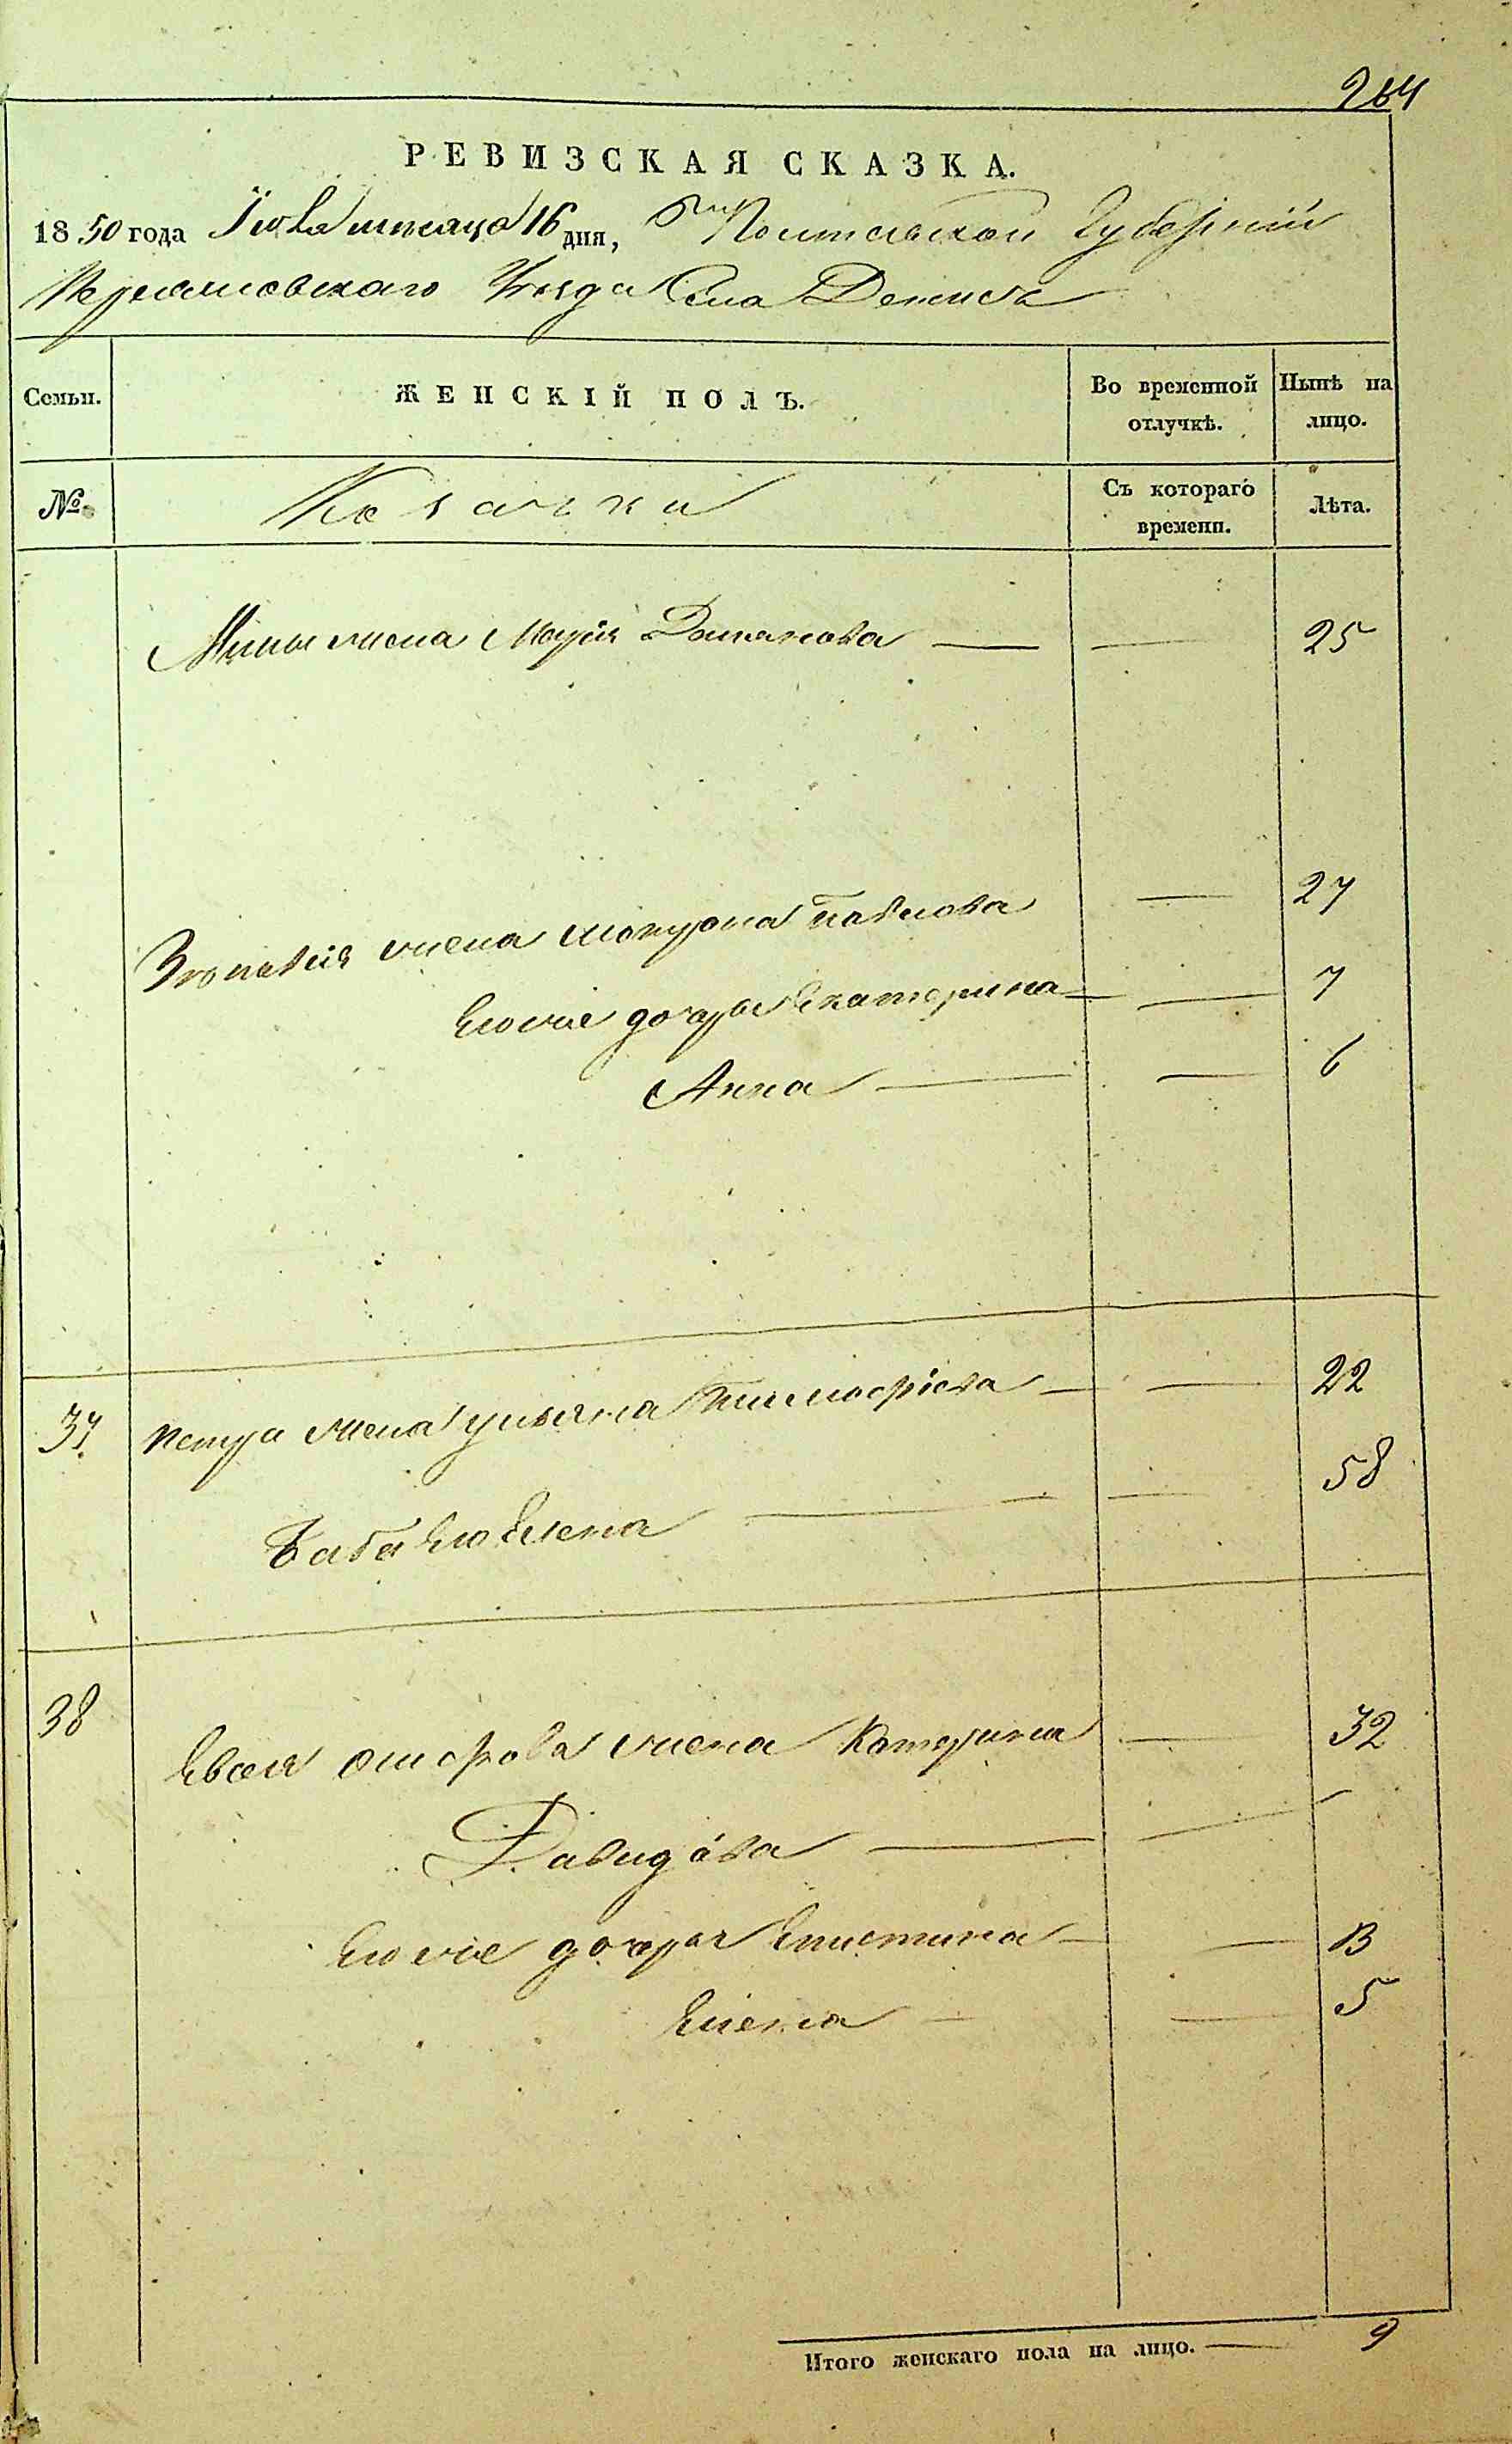 264
РЕВИЗСКАЯ СКАЗКА.
1850 года Іюля месяца 16 дня, Полтавской Губерніи
Переяславского Уезда Села Девички
Семьи. ЖЕНСКІЙ ПОЛЪ. Во временной отлучкѣ. Нынѣ на лицо.
№ Козачки Съ котораго времени. Лѣта.
жена Марія 25
жена Павлова 27
Его же дочери Екатерина 7
Анна 6
37 Петра жена Ульяна Тимофіева 22
Баба Его Елена 58
38 жена Катерина 32
Давидова
Его же дочери Епистина 13
Елена 5
Итого женскаго пола на лицо. 9